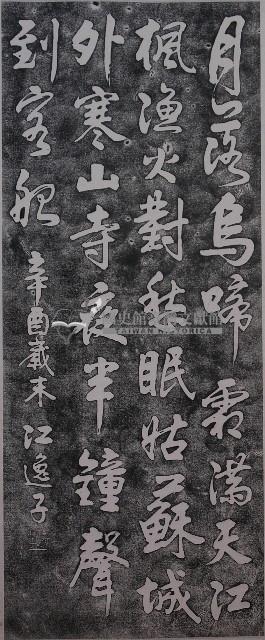 月落烏啼霜滿天江
楓漁火對愁眠姑蘇城
外寒山寺夜半鐘聲
到客船
辛酉歲末江逸子
TAIWAN HISTORICA